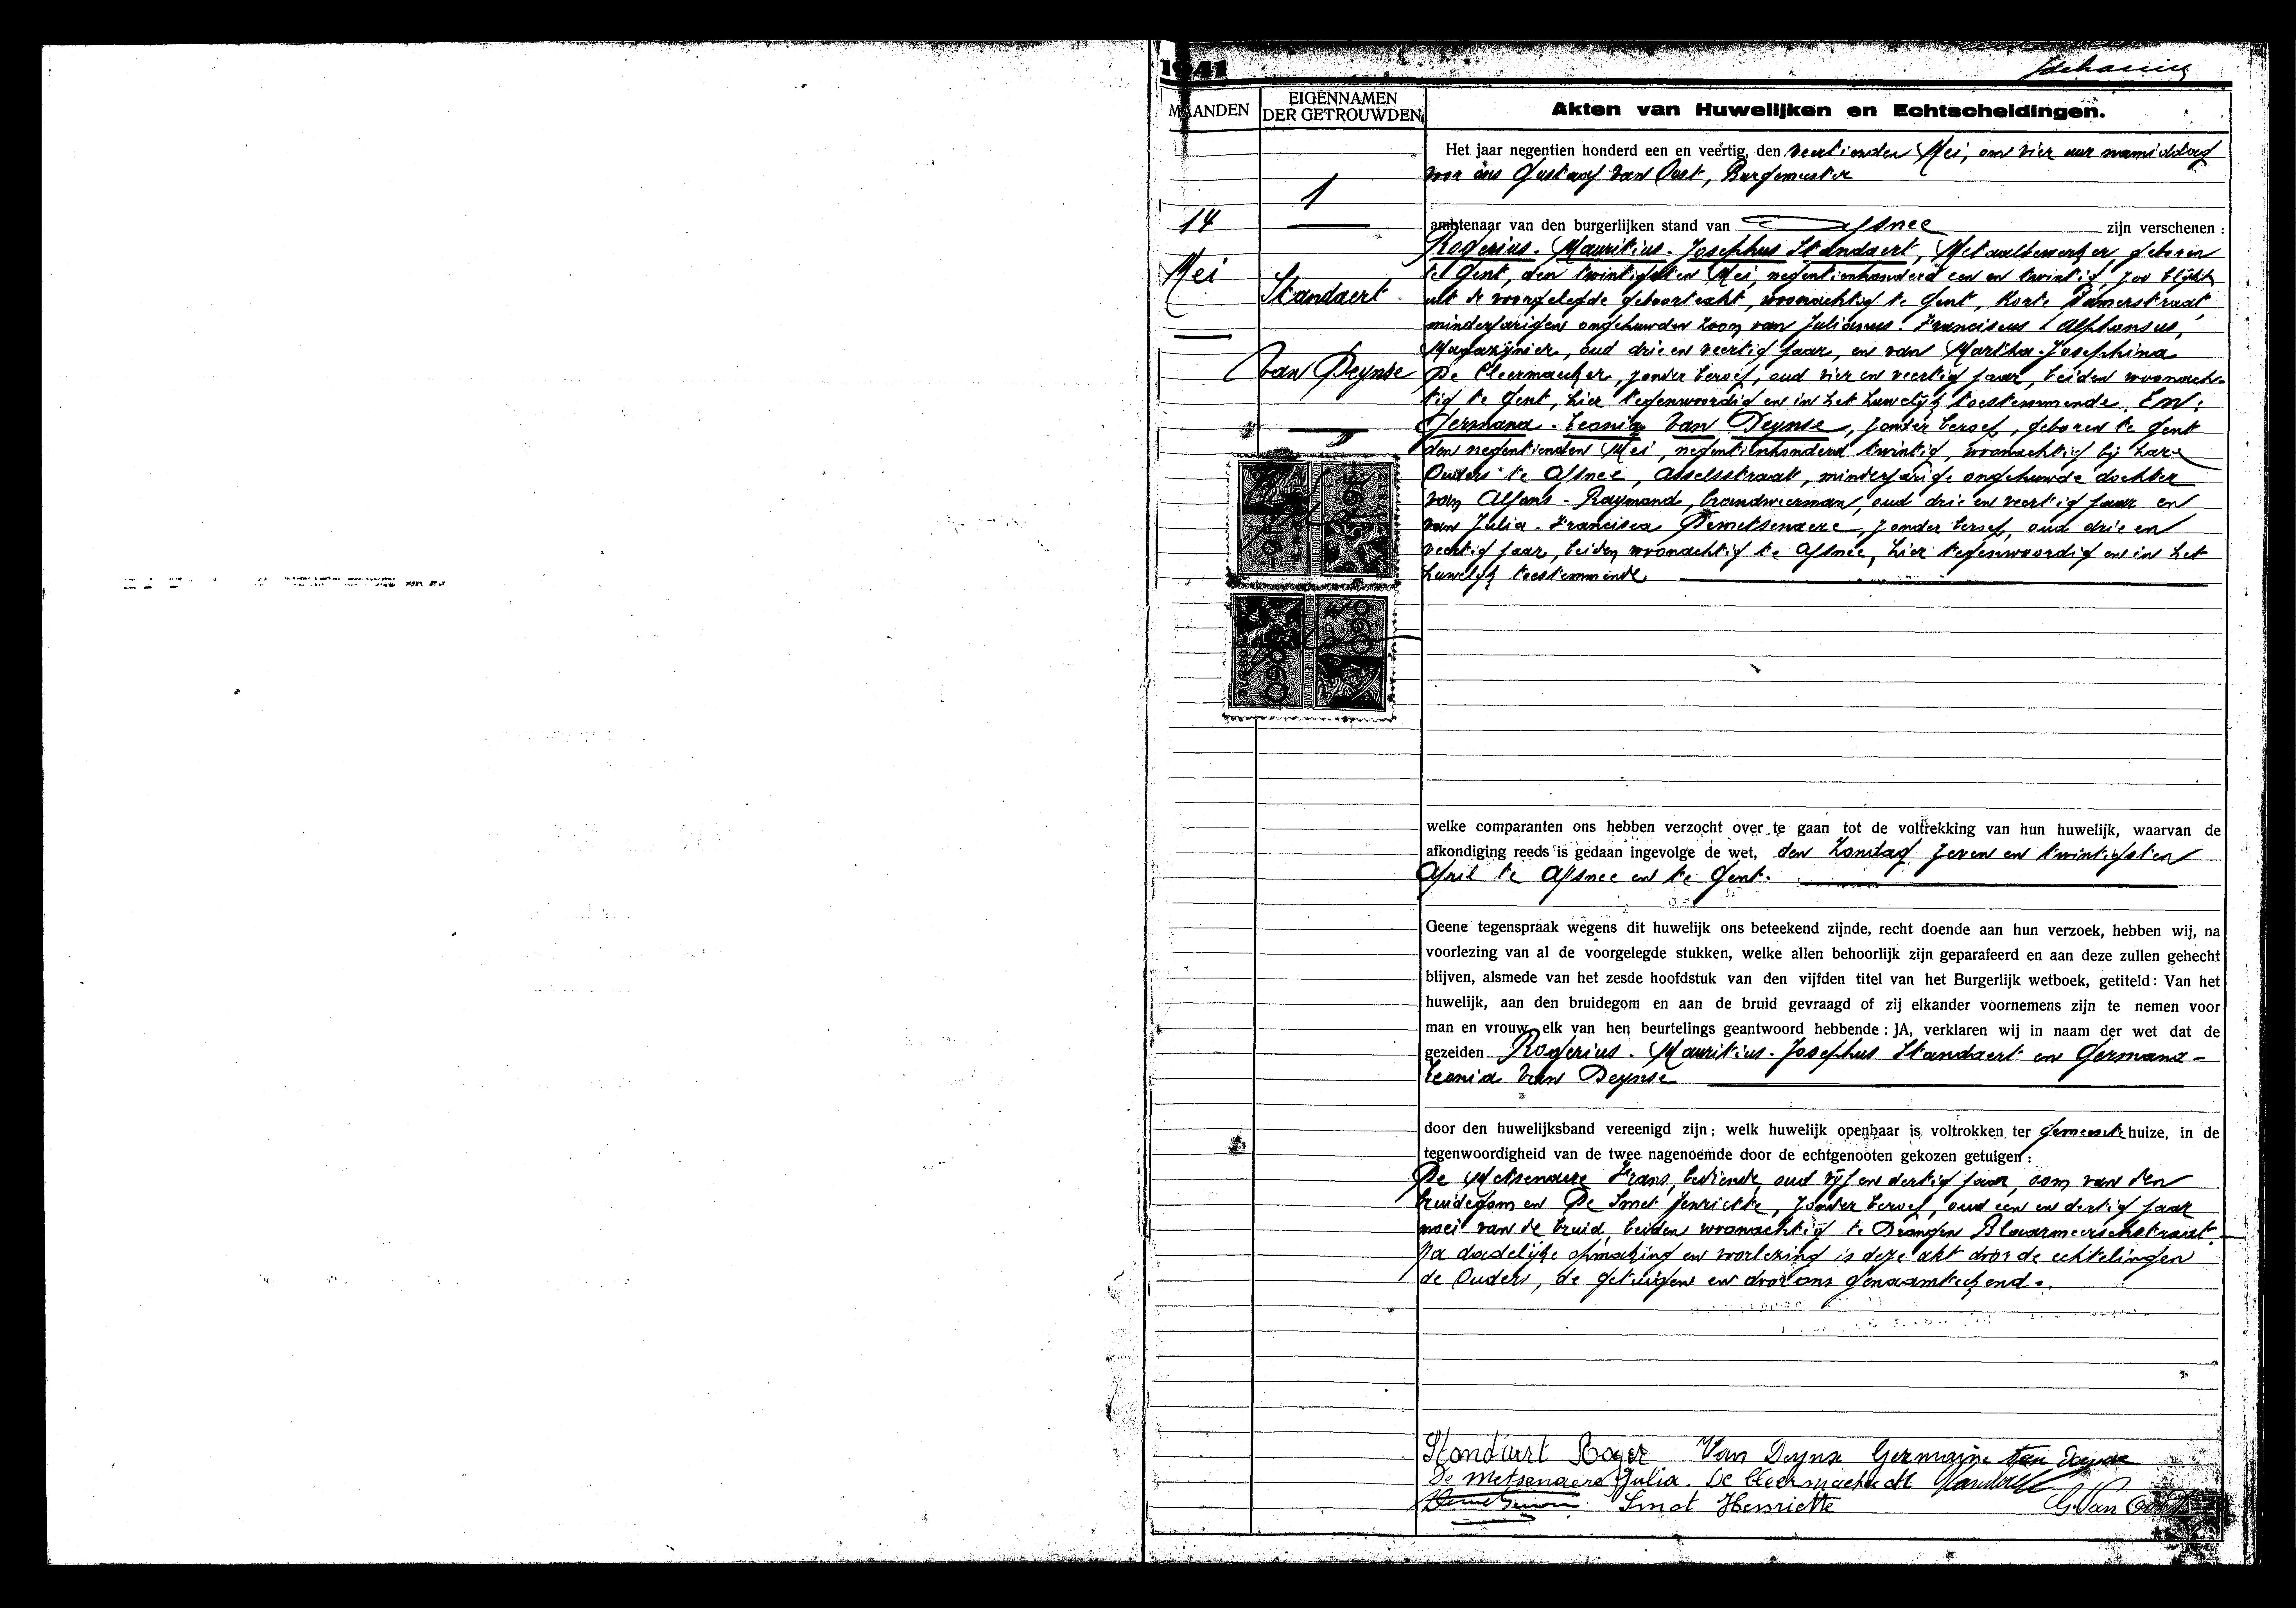 1941
MAANDEN
EIGENNAMEN
DER GETROUWDEN
Akten van Huwelijken en Echtscheidingen.
1
14
Mei
Standaert
Van Deynse
Het jaar negentien honderd een en veertig, den veertienden Mei, om vier uur namiddag
voor ons Gustaaf Van Oost, Burgemeester
ambtenaar van den burgerlijken stand van Afsnee zijn verschenen :
Rogerius - Mauritius - Josephus Standaert, Metaalbewerker, geboren
te Gent, den twintigsten Mei, negentienhonderd een en twintig, zoo blijkt
uit de voorgelegde geboorteakt, woonachtig te Gent, Korte Damerstraat
minderjarigen ongehuwden zoon van Julianus - Franciscus - Alphonsus,
Magazijnier, oud drie en veertig jaar, en van Martha - Josephina
De Cleermaecker, zonder beroep, oud vier en veertig jaar, beiden woonach-
tig te Gent, hier tegenwoordig en in het huwelijk toestemmende. En:
Germana - Leonia Van Deynse, zonder beroep, geboren te Gent
den negentienden Mei, negentienhonderd twintig, woonachtig bij hare
Ouders te Afsnee, Asselsstraat, minderjarige ongehuwde dochter
van Alfons - Raymond, brandweerman, oud drie en veertig jaar en
van Julia - Francisca Demetsenaere, zonder beroep, oud drie en
veertig jaar, beiden woonachtig te Afsnee, hier tegenwoordig en in het
huwelijk toestemmende
welke comparanten ons hebben verzocht over te gaan tot de voltrekking van hun huwelijk, waarvan de
afkondiging reeds is gedaan ingevolge de wet, den Zondag zeven en twintigsten
April te Afsnee en te Gent.
Geene tegenspraak wegens dit huwelijk ons beteekend zijnde, recht doende aan hun verzoek, hebben wij, na
voorlezing van al de voorgelegde stukken, welke allen behoorlijk zijn geparafeerd en aan deze zullen gehecht
blijven, alsmede van het zesde hoofdstuk van den vijfden titel van het Burgerlijk wetboek, getiteld : Van het
huwelijk, aan den bruidegom en aan de bruid gevraagd of zij elkander voornemens zijn te nemen voor
man en vrouw, elk van hen beurtelings geantwoord hebbende : JA, verklaren wij in naam der wet dat de
gezeiden Rogerius - Mauritius - Josephus Standaert en Germana -
Leonia Van Deynse
door den huwelijksband vereenigd zijn ; welk huwelijk openbaar is voltrokken ter gemeentehuize, in de
tegenwoordigheid van de twee nagenoemde door de echtgenooten gekozen getuigen :
De Metsenaere Frans, bediende, oud vijf en dertig jaar, oom van den
bruidegom en De Smet Henriette, zonder beroep, oud een en dertig jaar
moei van de bruid, beiden woonachtig te Drongen Blaarmeerschstraat.
Na dadelijke opmaking en voorlezing is deze akt door de echtelingen
de Ouders, de getuigen en door ons genaamteekend.
Standaert Roger Van Deynse Germaine Van Deynse
De Metsenaere Julia. De Cleermaecker M Standaert
Smet Henriette G. Van Oost